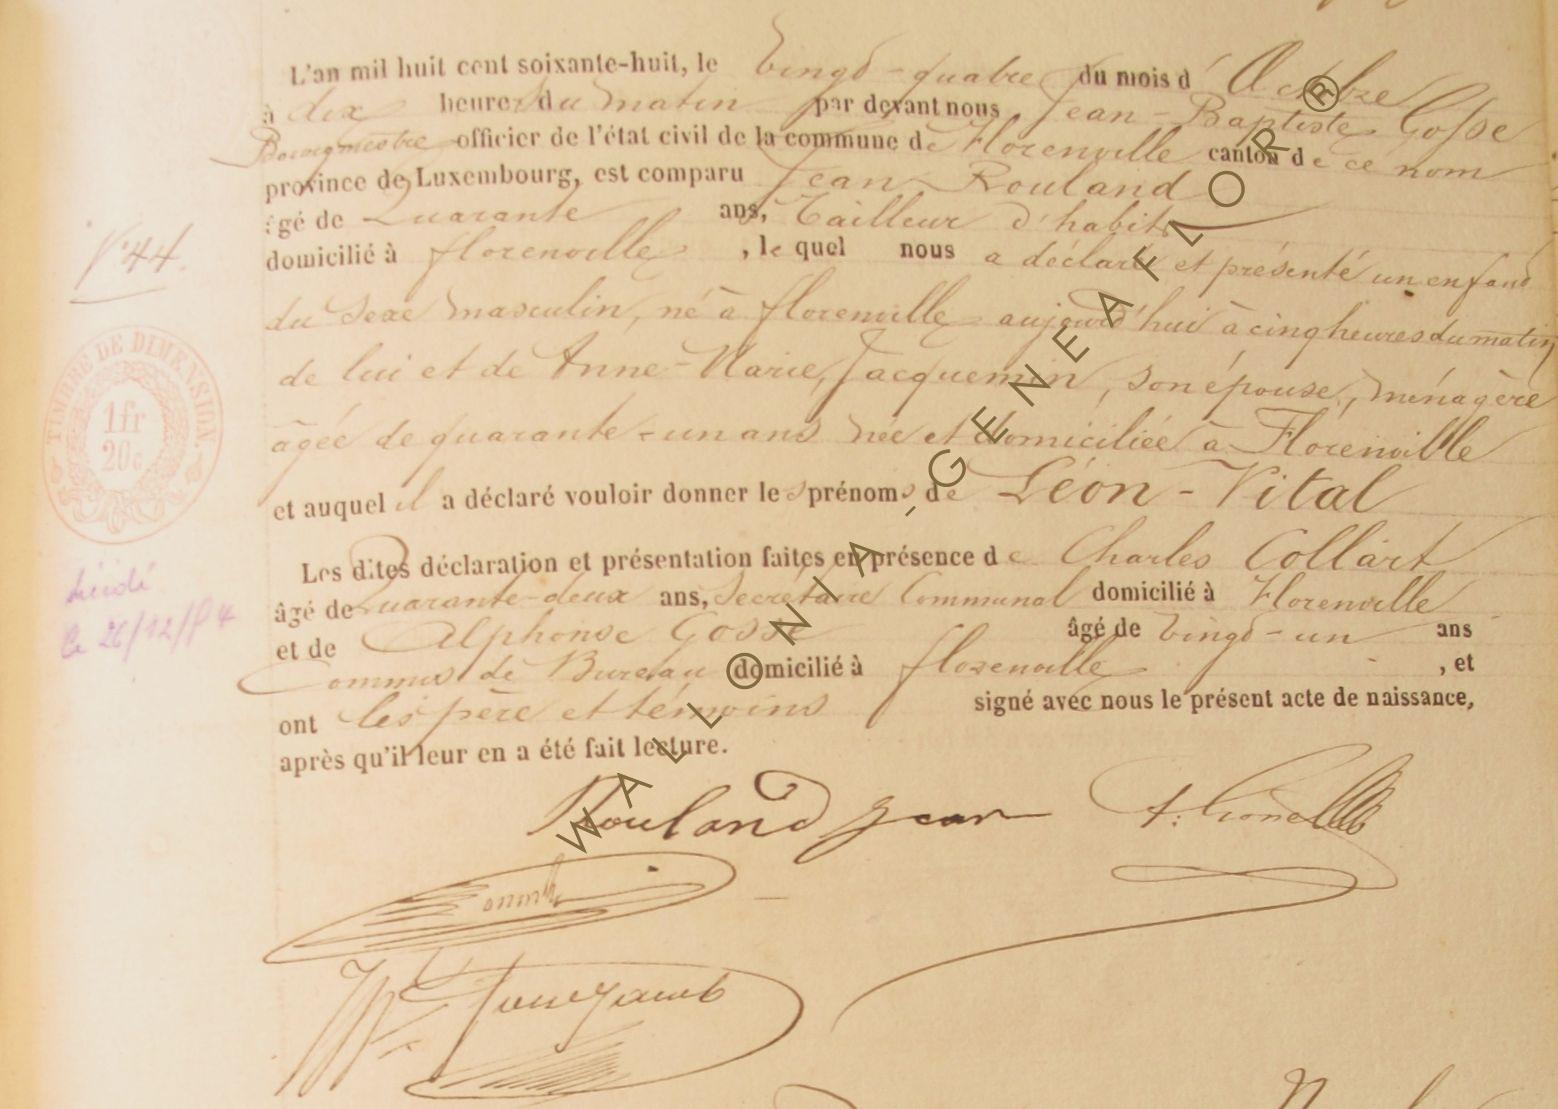 L'an mil huit cent soixante-huit, le vingt-quatre du mois d'Octobre
à dix heures du matin par devant nous Jean-Baptiste Gosse
Bourgmestre officier de l'état civil de la commune de Florenville canton de ce nom
province de Luxembourg, est comparu Jean Rouland
âgé de Quarante ans, Tailleur d'habits
domicilié à florenville, le quel nous a déclaré et présenté un enfant
N° 44.
du sexe masculin, né à florenville aujourd'hui à cinq heures du matin
de lui et de Anne-Marie Jacquemin, son épouse, ménagère
âgée de quarante-un ans née et domiciliée à Florenville
TIMBRE DE DIMENSION
1fr
20c
et auquel il a déclaré vouloir donner les prénoms de Léon-Vital
Les dites déclaration et présentation faites en présence de Charles Collart
âgé de Quarante-deux ans, Secrétaire Communal domicilié à Florenville
et de Alphonse Gosse âgé de vingt-un ans
Commis de Bureau domicilié à florenville, et
ont les père et témoins signé avec nous le présent acte de naissance,
après qu'il leur en a été fait lecture.
le 26/12/
Rouland Jean
WALLONIA-GENEAFLOR®